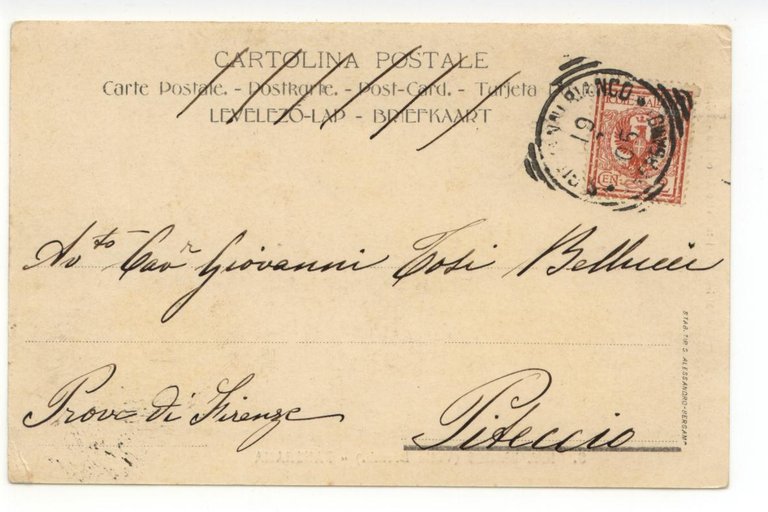 CARTOLINA POSTALE
Carte Postale. - Postkarte. - Post-Card. - Tarjeta
LEVELEZŐ-LAP - BRIEFKAART
05
Avto Cavr Giovanni Tosi Bellucci
Prova di Firenze
Piteccio
STAB. TIP. G. ALESSANDRO-BERGAMO